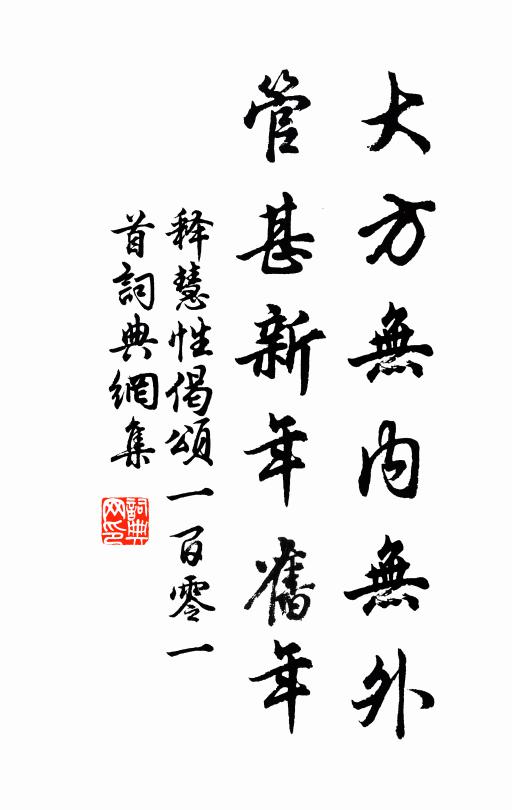 大方無內無外
管甚新年舊年
释慧性偈頌一百零一
首詞典網集
詞典
网印